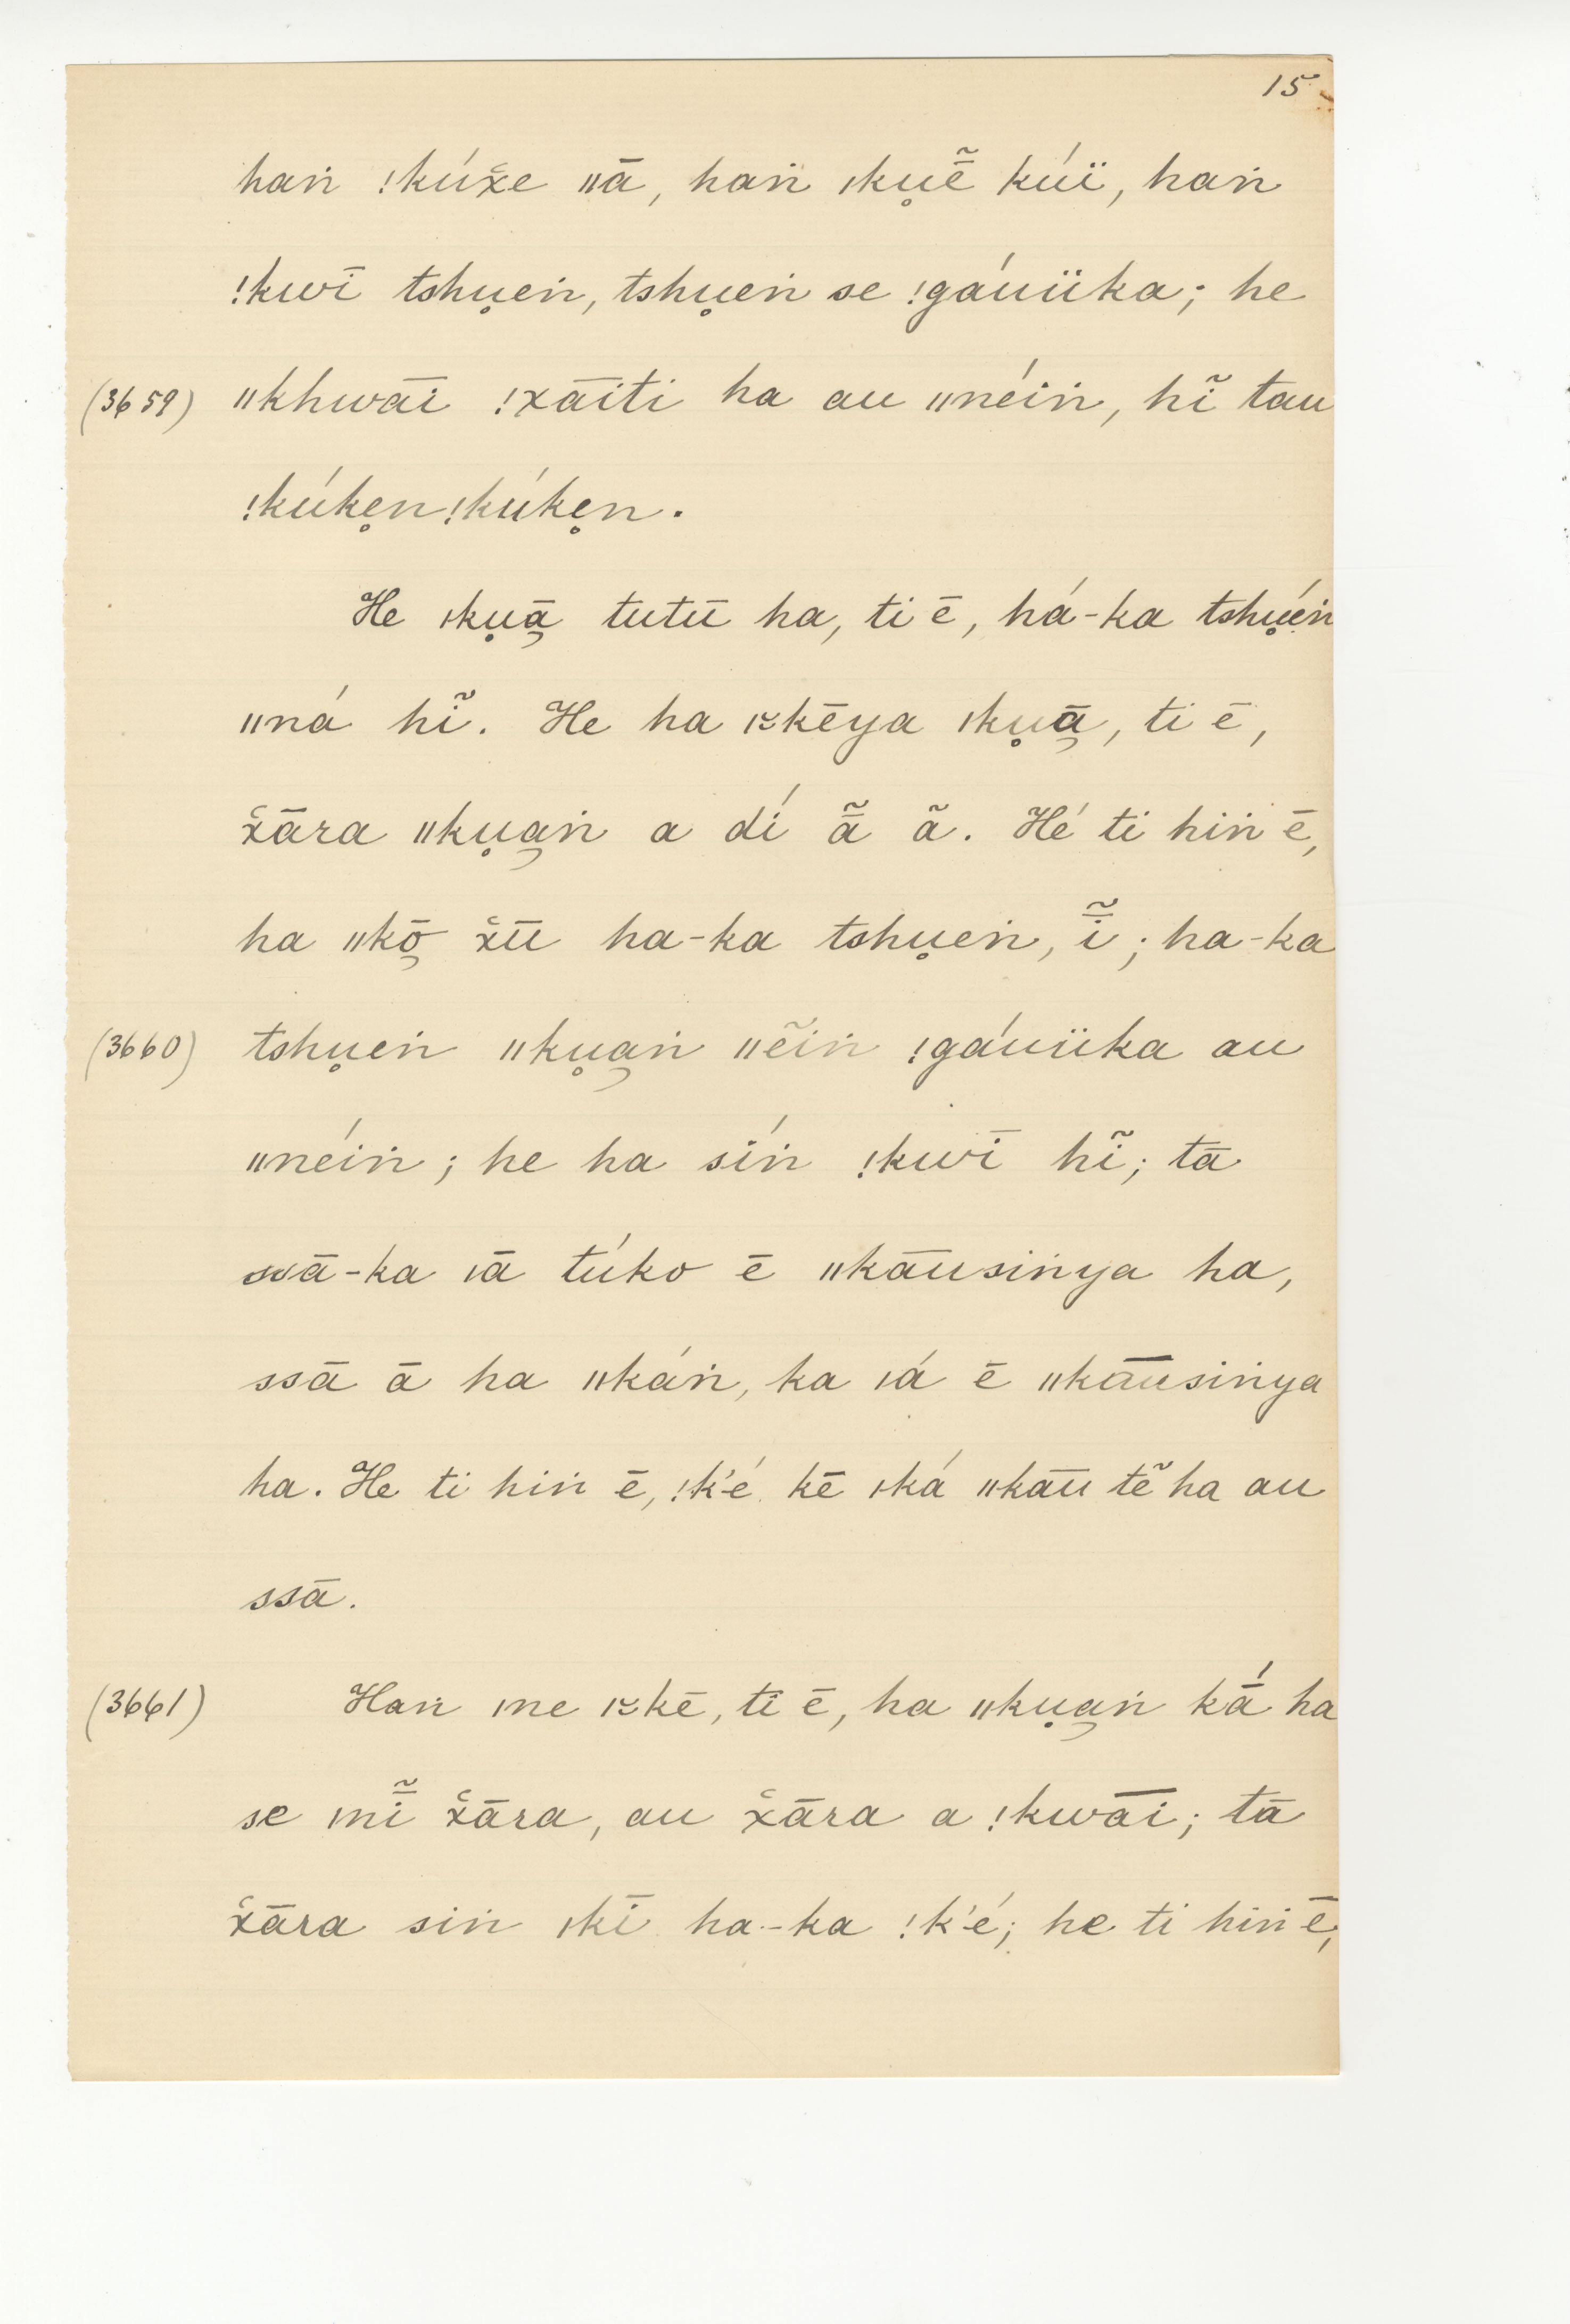 15
haṅ !kúx̌e ǁā, haṅ ǀku̥ẽ̄ kúï, haṅ
!kwī tshu̥eṅ, tshu̥eṅ se !gáuüka; he
(3659) ǁkhwāi !xāiti ha au ǁnéiṅ, hĩ tau
!kúke̥n !kúke̥n.
He ǀku̥ā̰ tutū ha, ti ē, há-ka tshu̥éṅ
ǁná hĩ. He ha ǀ꞉kēya ǀku̥ā̰, ti ē,
x̌āra ǁku̥a̰ṅ a dí ã̄ ã. Hé ti hiṅ ē,
ha ǁkō̰ x̌ū ha-ka tshu̥eṅ, ĩ̄; ha-ka
(3660) tshu̥eṅ ǁku̥a̰ṅ ǁẽiṅ !gáuüka au
ǁnéiṅ; he ha síṅ !kwī hĩ; tā
ssā-ka ǀā túko ē ǁkāusiṅya ha,
ssā ā ha ǁkáṅ, ka ǀá ē ǁkāusiṅya
ha. He ti hiṅ ē, !k'é kē ǀká ǁkāū tẽ ha au
ssā.
(3661) Haṅ ǀne ǀ꞉kē, ti ē, ha ǁku̥a̰ṅ kā́ ha
se ǀmĩ̄ x̌āra, au x̌āra a !kwāi; tā
x̌āra siṅ ǀkī ha-ka !k'é; he ti hiṅ ē,